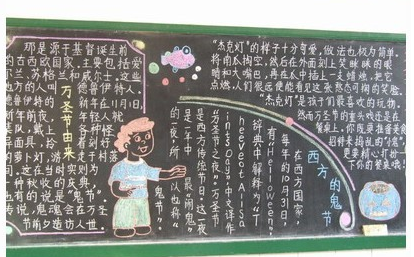 那是源于基督诞生前
的古西欧国家，主要包括爱
尔兰、苏格兰和威尔士。这些
地方的人叫德鲁伊特人。
德鲁伊特的新年在11月1日，
新年前夜，年轻人
队，戴上各种怪
面具，拎着刻好
的萝卜灯，游走于村落
间。这在当时实则为
一种秋收的庆典，
也有的说是“鬼节”，
传说，鬼魂会在万圣
节前夕造访人世
万圣节由来
“杰克灯”的样子十分可爱，做法也极为简单。
将南瓜掏空，然后在外面刻上笑眯眯的眼
睛和大嘴巴，再在瓜中插上一支蜡烛，把它
点燃，人们很远便能看见这张憨态可掬的笑脸。
“杰克灯”是孩子们最喜欢的玩物。
然而万圣节的重头戏还是在
餐桌上，你既要准备美食
招待来捣乱的“小鬼”，
更要精心打扮一
下你的餐桌哦！
西方的鬼节
在西方国家，
每年的10月31日，
有“Helloween”，
辞典中解释为“T
heeveofAllsa
intsDay”，中文译作
“万圣节之夜”。万圣节
是西方传统节日。这一夜
是一年中最“闹鬼”
的一夜，所以也称“
鬼节”。